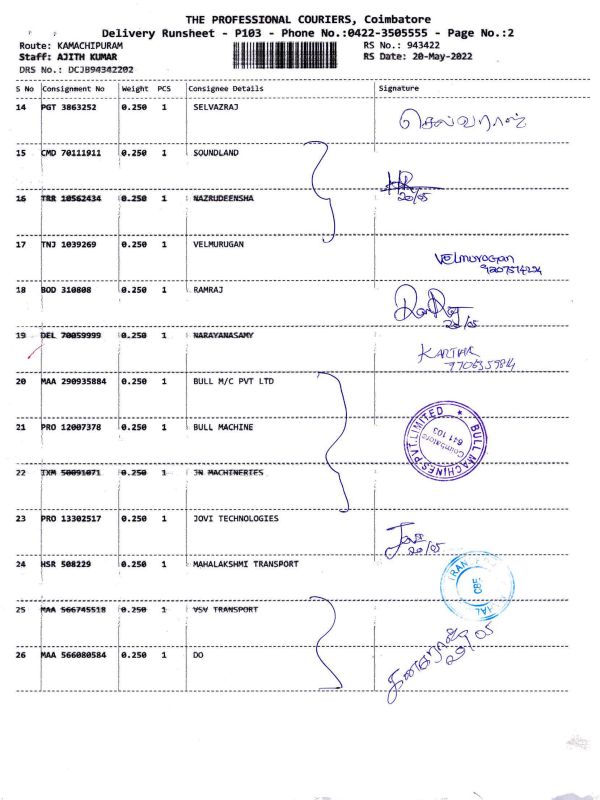 THE PROFESSIONAL COURIERS, Coimbatore
Delivery Runsheet - P103 - Phone No.:0422-3505555 - Page No.:2
Route: KAMACHIPURAM RS No.: 943422
Staff: AJITH KUMAR RS Date: 20-May-2022
DRS No.: DCJB94342202
S No Consignment No Weight PCS Consignee Details Signature
14 PGT 3863252 0.250 1 SELVAZRAJ செல்வராஜ்
15 CMD 70111911 0.250 1 SOUNDLAND
20/05
16 TRR 10562434 0.250 1 NAZRUDEENSHA
17 TNJ 1039269 0.250 1 VELMURUGAN Velmurugan
18 BOD 310808 0.250 1 RAMRAJ
20/05
19 DEL 70059999 0.250 1 NARAYANASAMY KARTHIK
20 MAA 290935884 0.250 1 BULL M/C PVT LTD
21 PRO 12007378 0.250 1 BULL MACHINE
BULL MACHINES PVT. LIMITED
Coimbatore
641 103
22 TXM 50091071 0.250 1 JN MACHINERIES
23 PRO 13302517 0.250 1 JOVI TECHNOLOGIES
20/05
24 HSR 508229 0.250 1 MAHALAKSHMI TRANSPORT
CBE
25 MAA 566745518 0.250 1 VSV TRANSPORT
20/05
26 MAA 566080584 0.250 1 DO